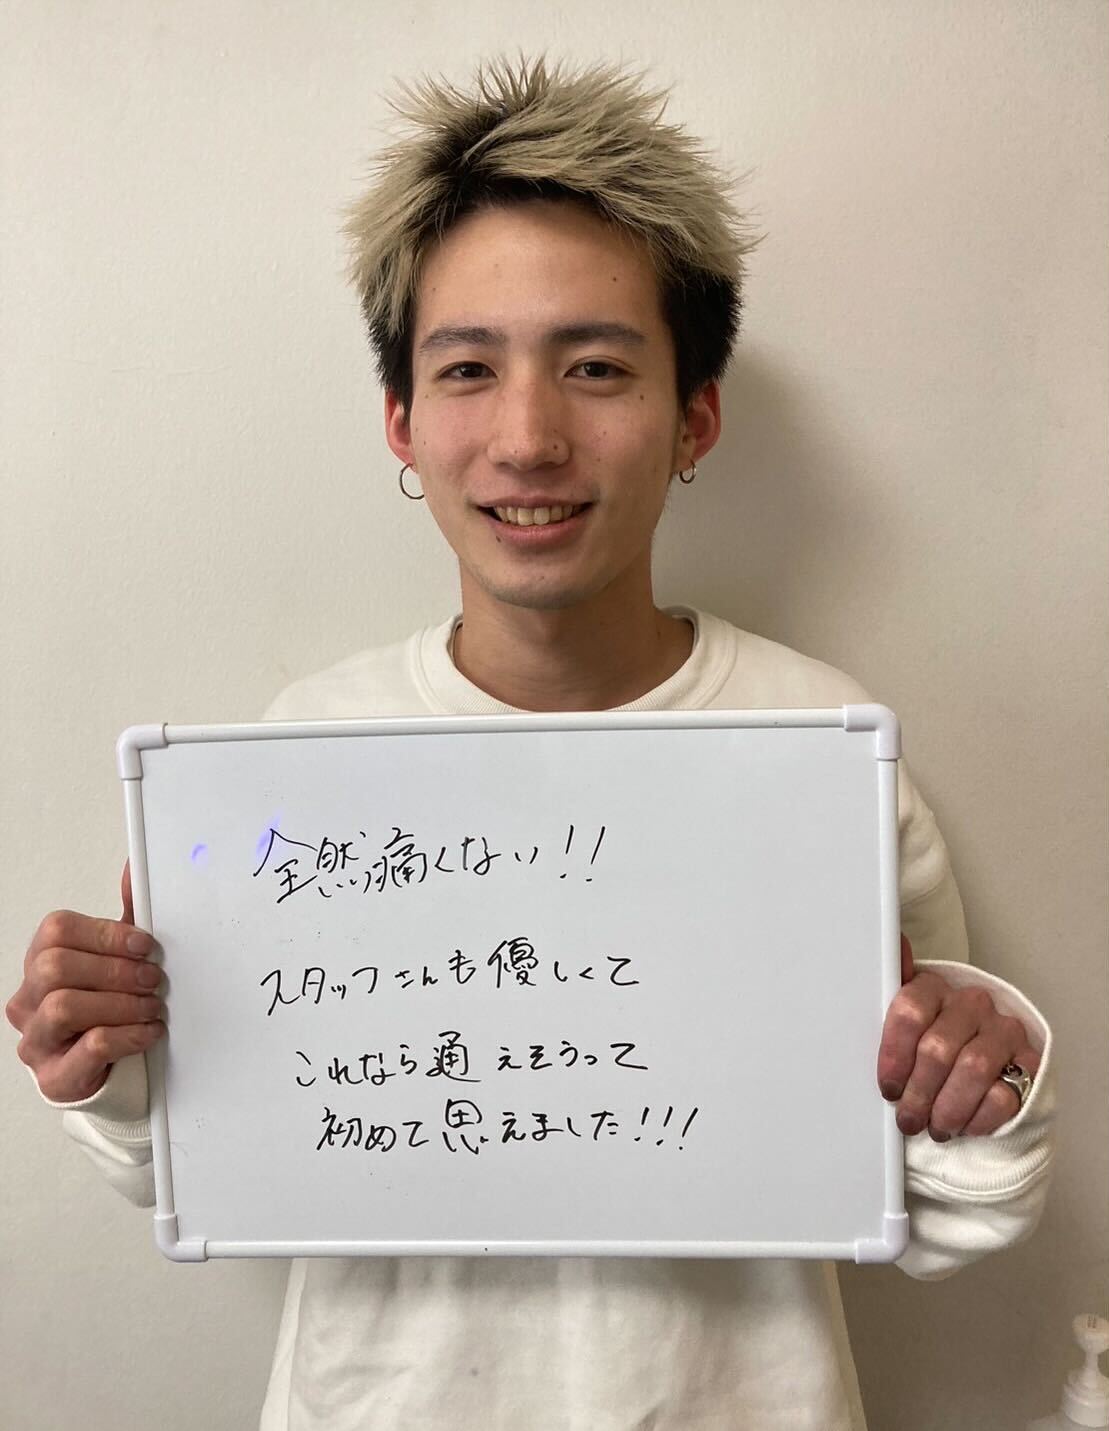 全然痛くない!!
スタッフさんも優しくて
これなら通えそうって
初めて思えました!!!